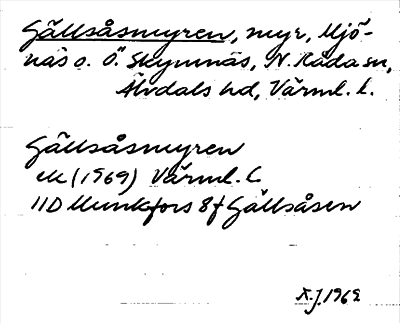 Gällsåsmyren, myr, Mjö-
näs o. Ö. Skymnäs, N. Råda sn,
Älvdals hd, Värml. l.
Gällsåsmyren
ek (1969) Värml. l.
11D Munkfors 8f Gällsåsen
1969